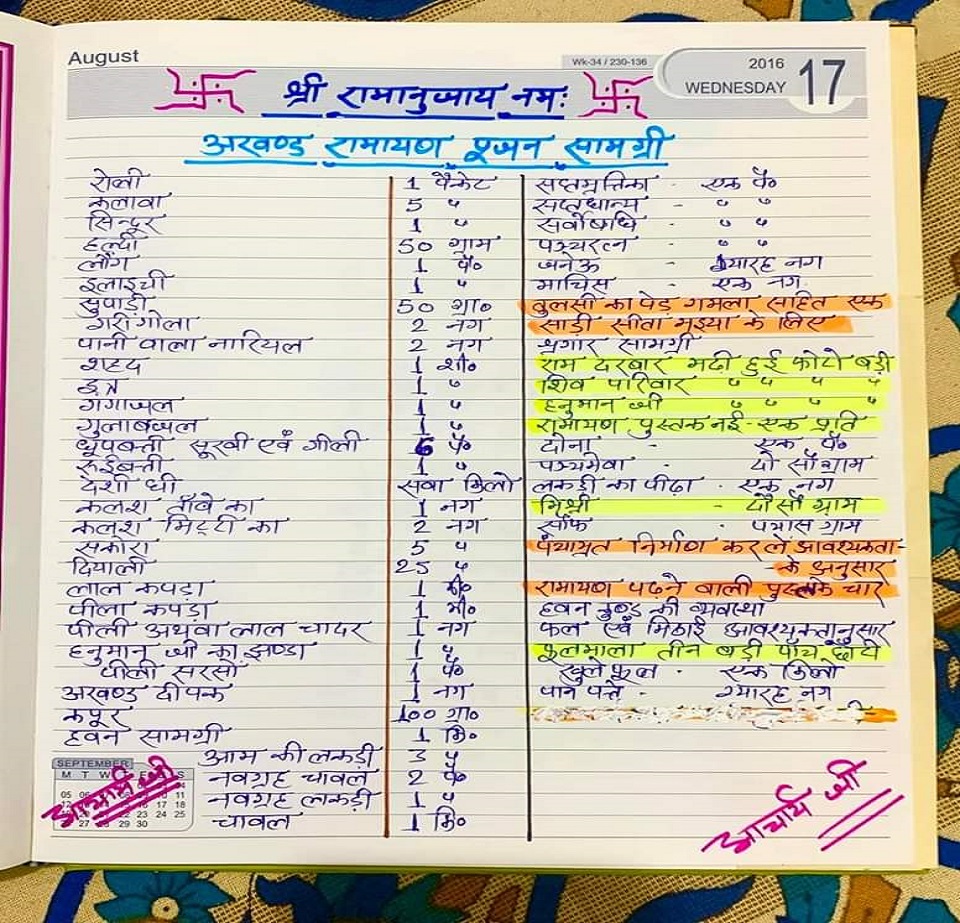 August
Wk-34 / 230-136
2016
WEDNESDAY
17
श्री रामानुजाय नमः
अखण्ड रामायण पूजन सामग्री
रोली 1 पैकेट
कलावा 5 "
सिन्दूर 1 "
हल्दी 50 ग्राम
लौंग 1 पै०
इलाइची 1 "
सुपाड़ी 50 ग्रा०
गरी गोला 2 नग
पानी वाला नारियल 2 नग
शहद 1 शी०
इत्र 1 "
गंगाजल 1 "
गुलाबजल 1 "
धूपबत्ती सूखी एवं गीली 6 पै०
रूईबत्ती 1 "
देशी घी सवा किलो
कलश ताँबे का 1 नग
कलश मिट्टी का 2 नग
सकोरा 5 "
दियाली 25 "
लाल कपड़ा 1 मी०
पीला कपड़ा 1 मी०
पीली अथवा लाल चादर 1 नग
हनुमान जी का झण्डा 1 "
पीली सरसों 1 पै०
अखण्ड दीपक 1 नग
कपूर 100 ग्रा०
हवन सामग्री 1 कि०
आम की लकड़ी 3 "
नवग्रह चावल 2 पै०
नवग्रह लकड़ी 1 "
चावल 1 कि०
सप्तमृत्तिका - एक पै०
सप्तधान्य - " "
सर्वोषधि - " "
पञ्चरत्न - " "
जनेऊ - ग्यारह नग
माचिस - एक नग
तुलसी का पेड़ गमला सहित एक
साड़ी सीता मइया के लिए
श्रृंगार सामग्री
राम दरबार मढ़ी हुई फोटो बड़ी
शिव परिवार " " " "
हनुमान जी " " " "
रामायण पुस्तक नई - एक प्रति
दोना - एक पै०
पञ्चमेवा - दो सौ ग्राम
लकड़ी का पीढ़ा - एक नग
मिश्री - दो सौ ग्राम
सौंफ - पचास ग्राम
पंचामृत निर्माण कर लें आवश्यकता -
के अनुसार
रामायण पढ़ने वाली पुस्तके चार
हवन कुण्ड की व्यवस्था
फल एवं मिठाई आवश्यक्तानुसार
फूलमाला तीन बड़ी पाँच छोटी
खुले फूल - एक किलो
पान पत्ते - ग्यारह नग
SEPTEMBER
आचार्य जी
आचार्य जी